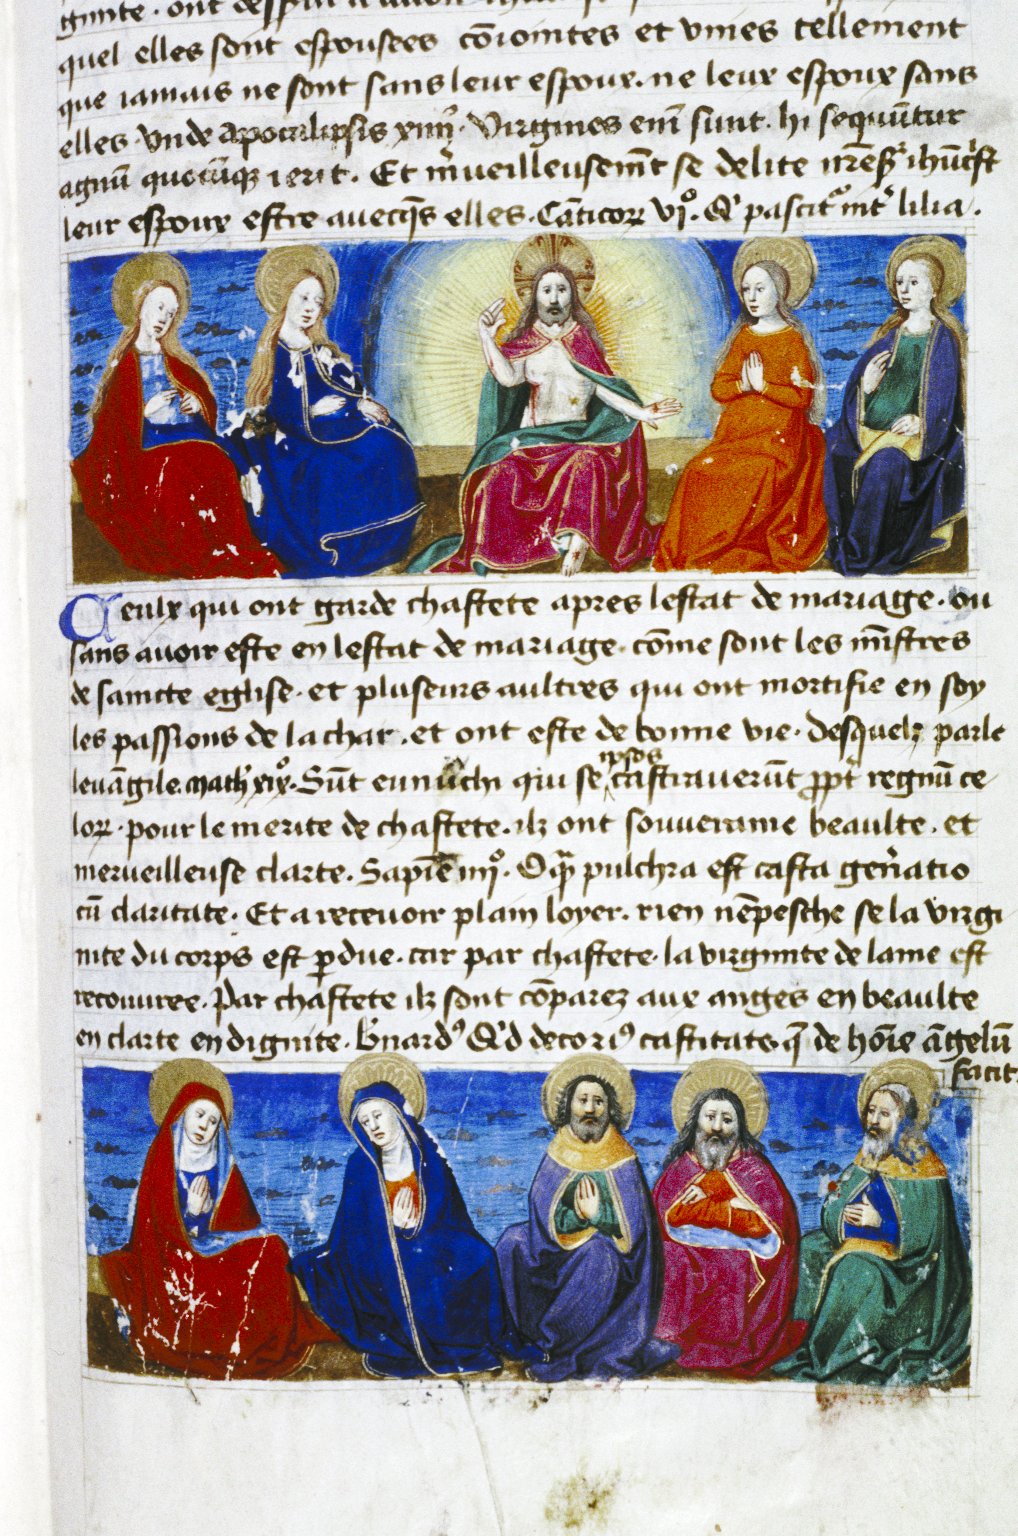 quel elles sont espousees cōiointes et unies tellement
que iamais ne sont sans leur espoux. ne leur espoux sans
elles. Vnde apocalipsis xiiij. Virgines eni sunt. hi sequūtur
agnū quocūqꝫ ierit. Et m̄ueilleusemēt se delite nr̄e sʳ ihūcrist
leur espoux estre auecqs̄ elles. Cāticoꝝ vi°. Qⁱ pascitʳ int̄ lilia.
Ceulx qui ont garde chastete apres lestat de mariage. ou
sans auoir este en lestat de mariage. cōme sont les mīstres
de saincte eglise. et pluseurs aultres qui ont mortifie en soy
les passions de la char. et ont este de bonne vie. desquelz parle
leuāgile. math' xix°. Sūt eunuchi qui se ipsos castrauerūt ꝓpt̄ regnū ce
loꝝ. pour le merite de chastete. ilz ont souueraine beaulte. et
merueilleuse clarte. Sapiē iiij°. O qᵃ̄ pulchra est casta gen̄atio
cū claritate. Et a receuoir plain loyer. rien nēpesche se la virgi
nite du corps est ꝑdue. car par chastete. la virginite de lame est
recouuree. Par chastete ilz sont cōparez aux anges en beaulte
en clarte en dignite. B'nardꝰ Qⁱd decoriꝰ castitate. q̄ de hoīe āgelū
facit.